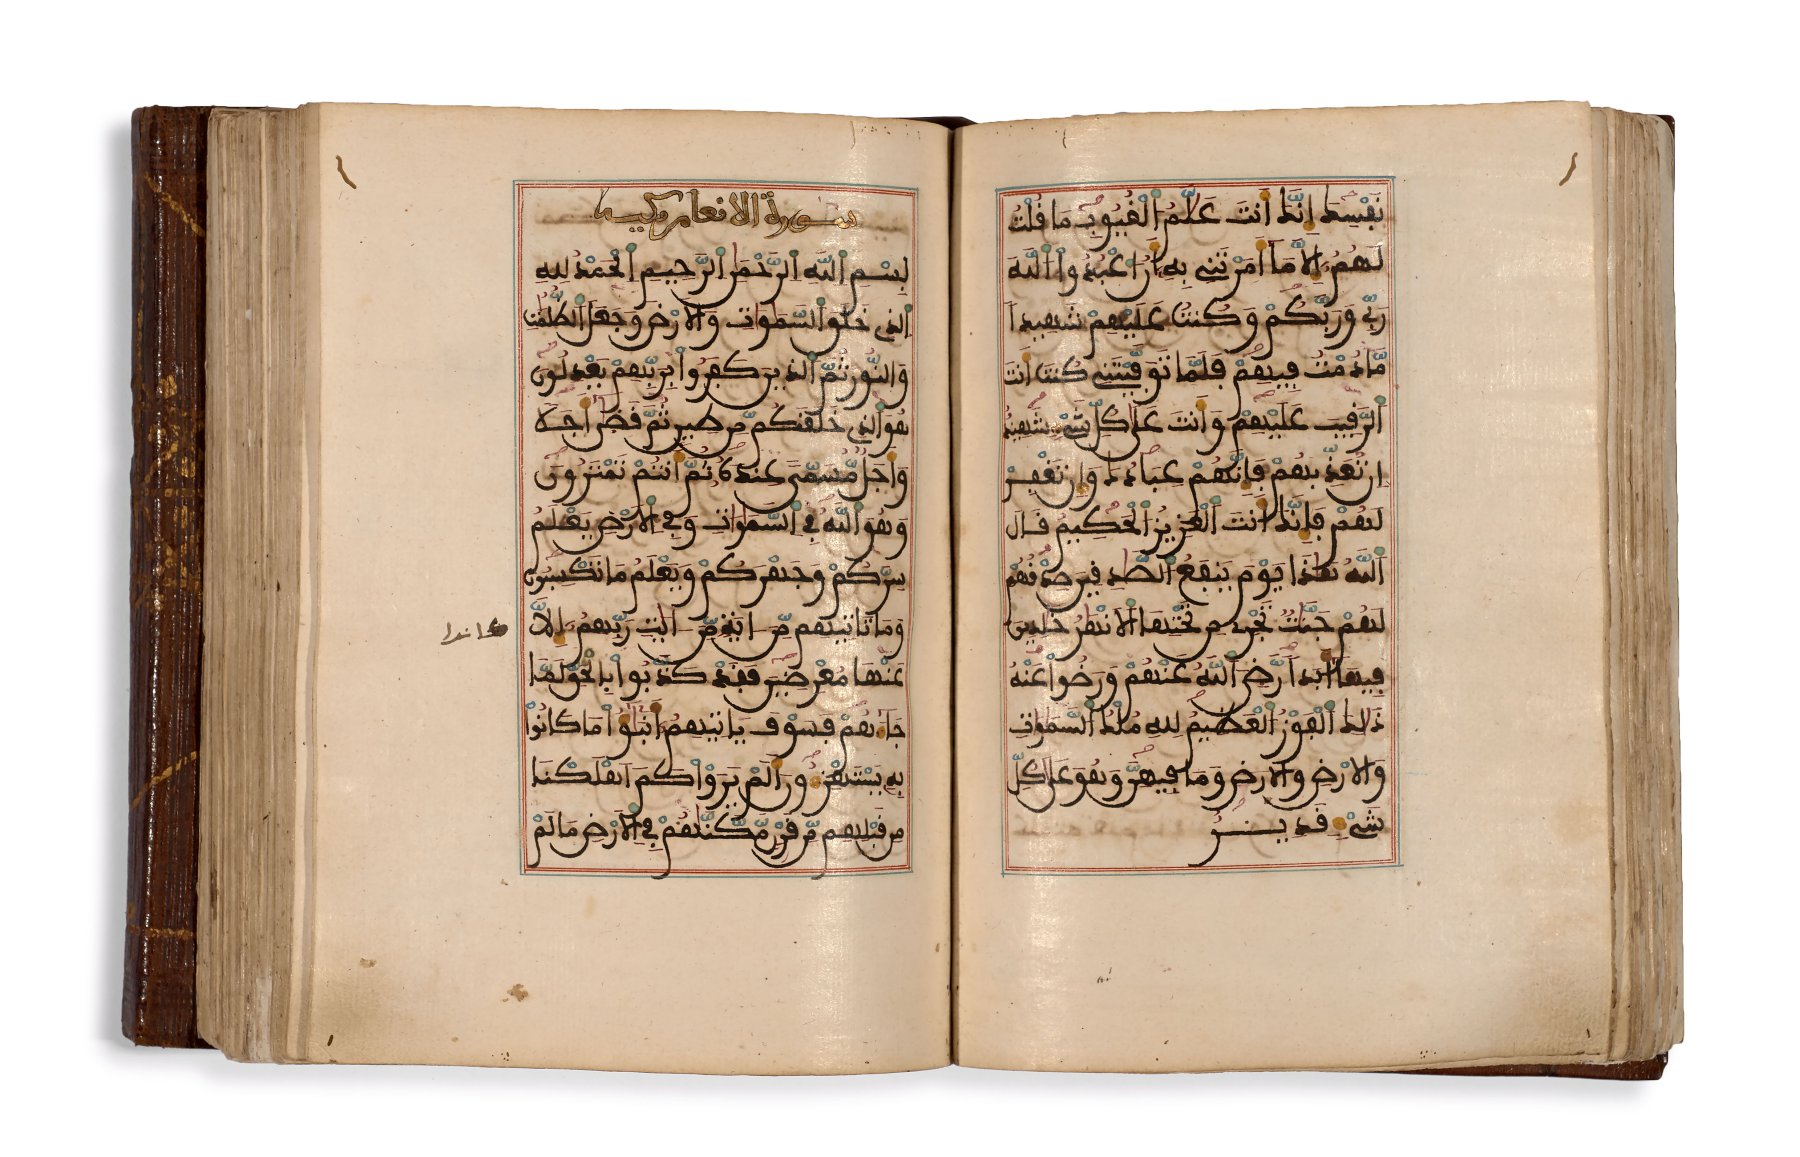 نَفْسِكَ إِنَّكَ أَنتَ عَلَّـٰمُ الْغُيُوبِ مَا قُلْتُ
لَهُمُ إِلَّا مَا أَمَرْتَنِي بِهِ أَنُ اعْبُدُوا اللَّهَ
رَبِّي وَرَبَّكُمْ وَكُنتُ عَلَيْهِمْ شَهِيدًا
مَّا دُمْتُ فِيهِمْ فَلَمَّا تَوَفَّيْتَنِي كُنتَ أَنتَ
الرَّقِيبَ عَلَيْهِمْ وَأَنتَ عَلَىٰ كُلِّ شَيْءٍ شَهِيدٌ
إِن تُعَذِّبْهُمْ فَإِنَّهُمْ عِبَادُكَ وَإِن تَغْفِرْ
لَهُمْ فَإِنَّكَ أَنتَ الْعَزِيزُ الْحَكِيمُ قَالَ
اللَّهُ هَـٰذَا يَوْمَ يَنفَعُ الصَّـٰدِقِينَ صِدْقُهُمْ
لَهُمْ جَنَّـٰتٌ تَجْرِي مِن تَحْتِهَا الْأَنْهَـٰرُ خَـٰلِدِينَ
فِيهَا أَبَدًا رَّضِيَ اللَّهُ عَنْهُمْ وَرَضُوا عَنْهُ
ذَٰلِكَ الْفَوْزُ الْعَظِيمُ لِلَّهِ مُلْكُ السَّمَـٰوَٰتِ
وَالْأَرْضِ وَالْأَرْضِ وَمَا فِيهِنَّ وَهُوَ عَلَىٰ كُلِّ
شَيْءٍ قَدِيرٌ
سورة الانعام مكية
بِسْمِ اللَّهِ الرَّحْمَـٰنِ الرَّحِيمِ الْحَمْدُ لِلَّهِ
الَّذِي خَلَقَ السَّمَـٰوَٰتِ وَالْأَرْضَ وَجَعَلَ الظُّلُمَـٰتِ
وَالنُّورَ ثُمَّ الَّذِينَ كَفَرُوا بِرَبِّهِمْ يَعْدِلُونَ
هُوَ الَّذِي خَلَقَكُم مِّن طِينٍ ثُمَّ قَضَىٰ أَجَلًا
وَأَجَلٌ مُّسَمًّى عِندَهُ ثُمَّ أَنتُمْ تَمْتَرُونَ
وَهُوَ اللَّهُ فِي السَّمَـٰوَٰتِ وَفِي الْأَرْضِ يَعْلَمُ
سِرَّكُمْ وَجَهْرَكُمْ وَيَعْلَمُ مَا تَكْسِبُونَ
وَمَا تَأْتِيهِم مِّنْ ءَايَةٍ مِّنْ ءَايَـٰتِ رَبِّهِمُ إِلَّا كانوا
عَنْهَا مُعْرِضِينَ فَقَدْ كَذَّبُوا بِالْحَقِّ لَمَّا
جَاءَهُمْ فَسَوْفَ يَأْتِيهِمُ أَنبَـٰؤُا مَا كَانُوا
بِهِ يَسْتَهْزِءُونَ أَلَمْ يَرَوْا كَمَ اهْلَكْنَا
مِن قَبْلِهِم مِّن قَرْنٍ مَّكَّنَّـٰهُمْ فِي الْأَرْضِ مَا لَمْ